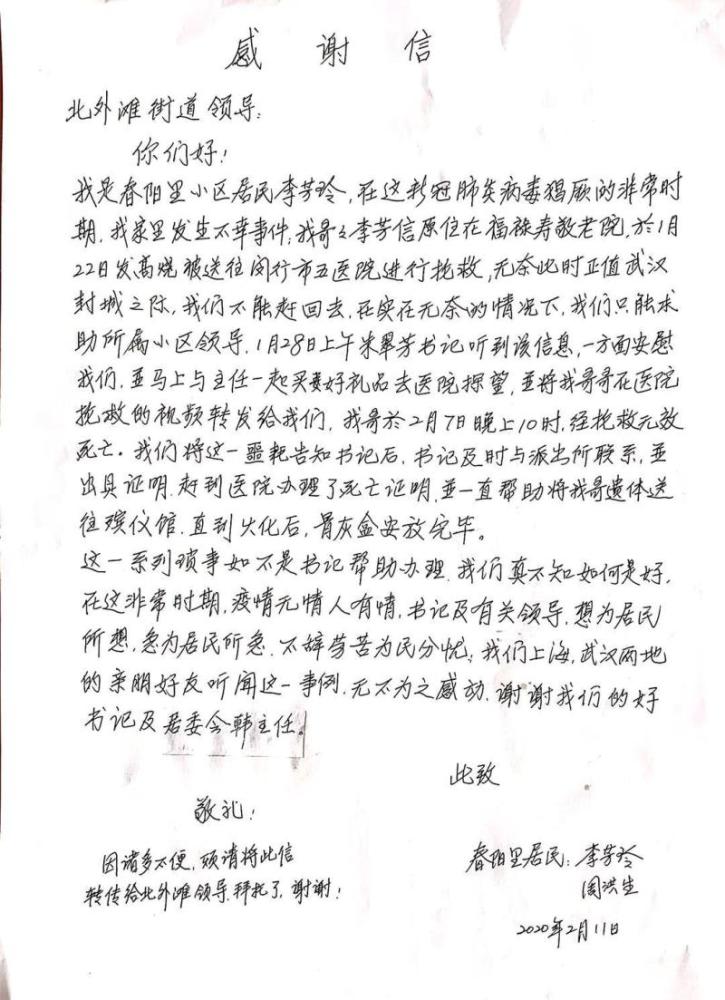 感谢信
北外滩街道领导:
你们好!
我是春阳里小区居民李芳玲,在这新冠肺炎病毒猖厥的非常时
期,我家里发生不幸事件,我哥々李芳信原住在福禄寿敬老院,於1月
22日发高烧被送往闵行市五医院进行抢救,无奈此时正值武汉
封城之际,我们不能赶回去,在实在无奈的情况下,我们只能求
助所属小区领导.1月28日上午朱翠芳书记听到该信息,一方面安慰
我们,並马上与主任一起买妻好礼品去医院探望,並将我哥哥在医院
抢救的视频转发给我们,我哥於2月7日晚上10时,经抢救无效
死亡。我们将这一噩耗告知书记后,书记及时与派出所联系,並
出具证明,赶到医院办理了死亡证明,並一直帮助将我哥遗体送
往殡仪馆.直到火化后,骨灰盒安放完毕。
这一系列琐事如不是书记帮助办理,我们真不知如何是好,
在这非常时期,疫情无情人有情,书记及有关领导,想为居民
所想,急为居民所急,不辞劳苦为民分忧;我们上海,武汉两地
的亲朋好友听闻这一事例,无不为之感动,谢谢我们的好
书记及居委会韩主任。
此致
敬礼!
因诸多不便,烦请将此信
转传给北外滩领导.拜托了,谢谢!
春阳里居民:李芳玲
周洪生
2020年2月11日